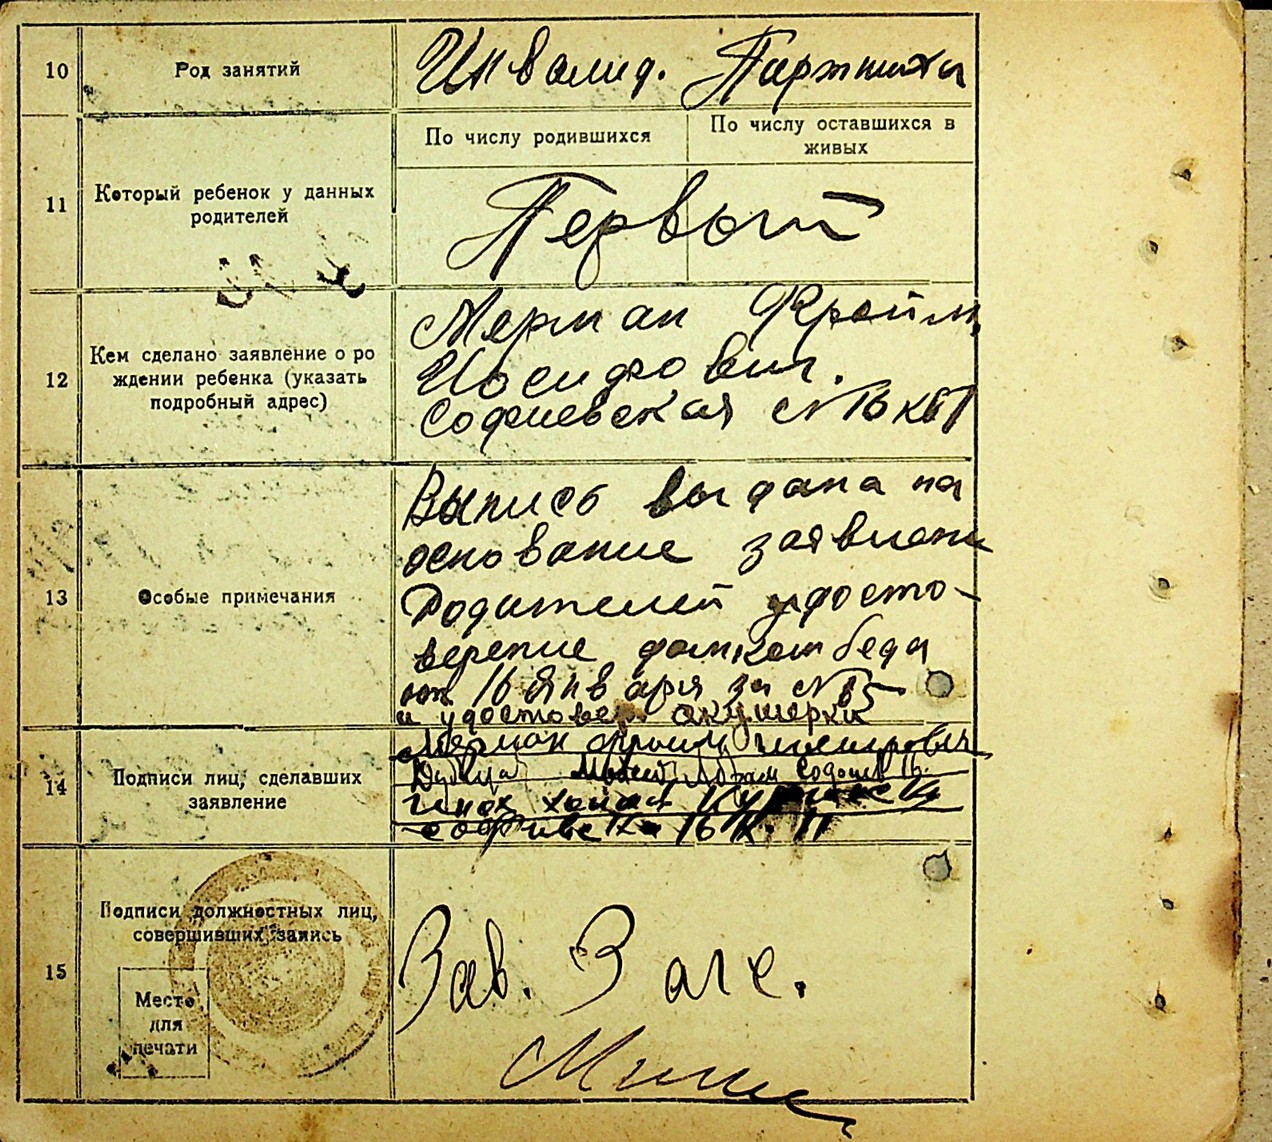 10 Род занятий
Инвалид. Портниха
11 Который ребенок у данных
родителей
По числу родившихся
По числу оставшихся в
живых
Первый
12 Кем сделано заявление о ро
ждении ребенка (указать
подробный адрес)
Мерман Фроим
Иосифович.
Софиевская №16 кв
13 Особые примечания
Выпись выдана на
основание заявлени
Родителей удосто-
верение домкомбеда
от 16 Января за №
и удостовер. акушерки
14 Подписи лиц, сделавших
заявление
Мерман Фроим
15 Подписи должностных лиц,
совершивших запись
Место
для
печати
Зав. Загс.